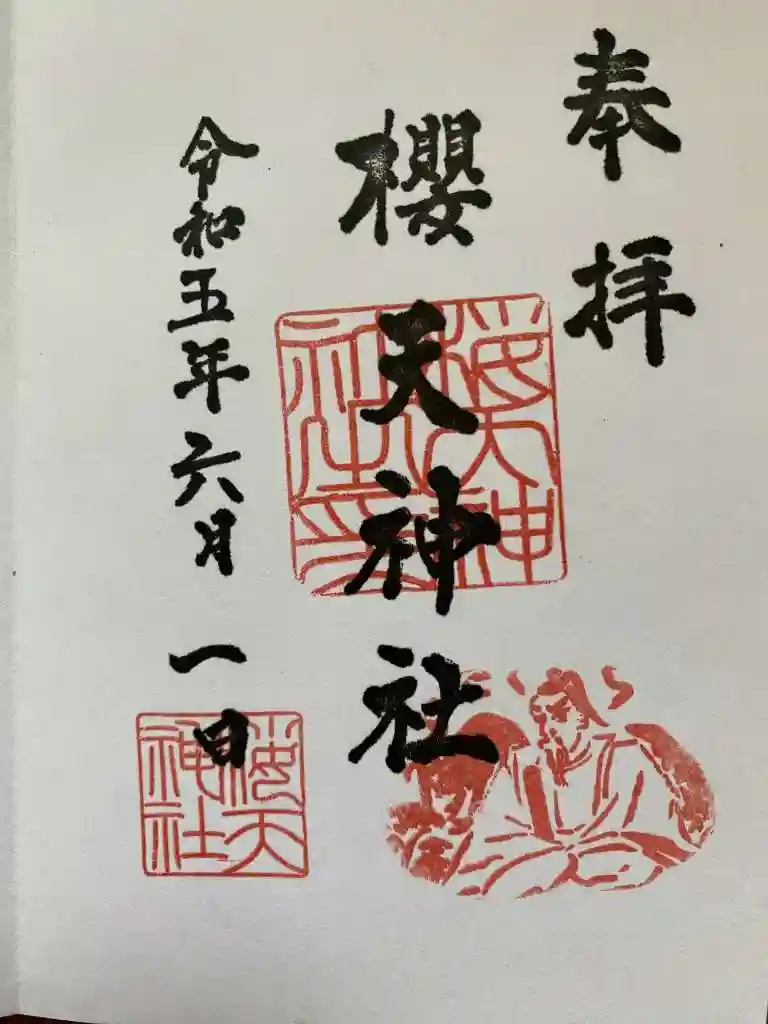 奉拝
櫻天神社
令和五年六月一日
桜天神社之印
桜天神社